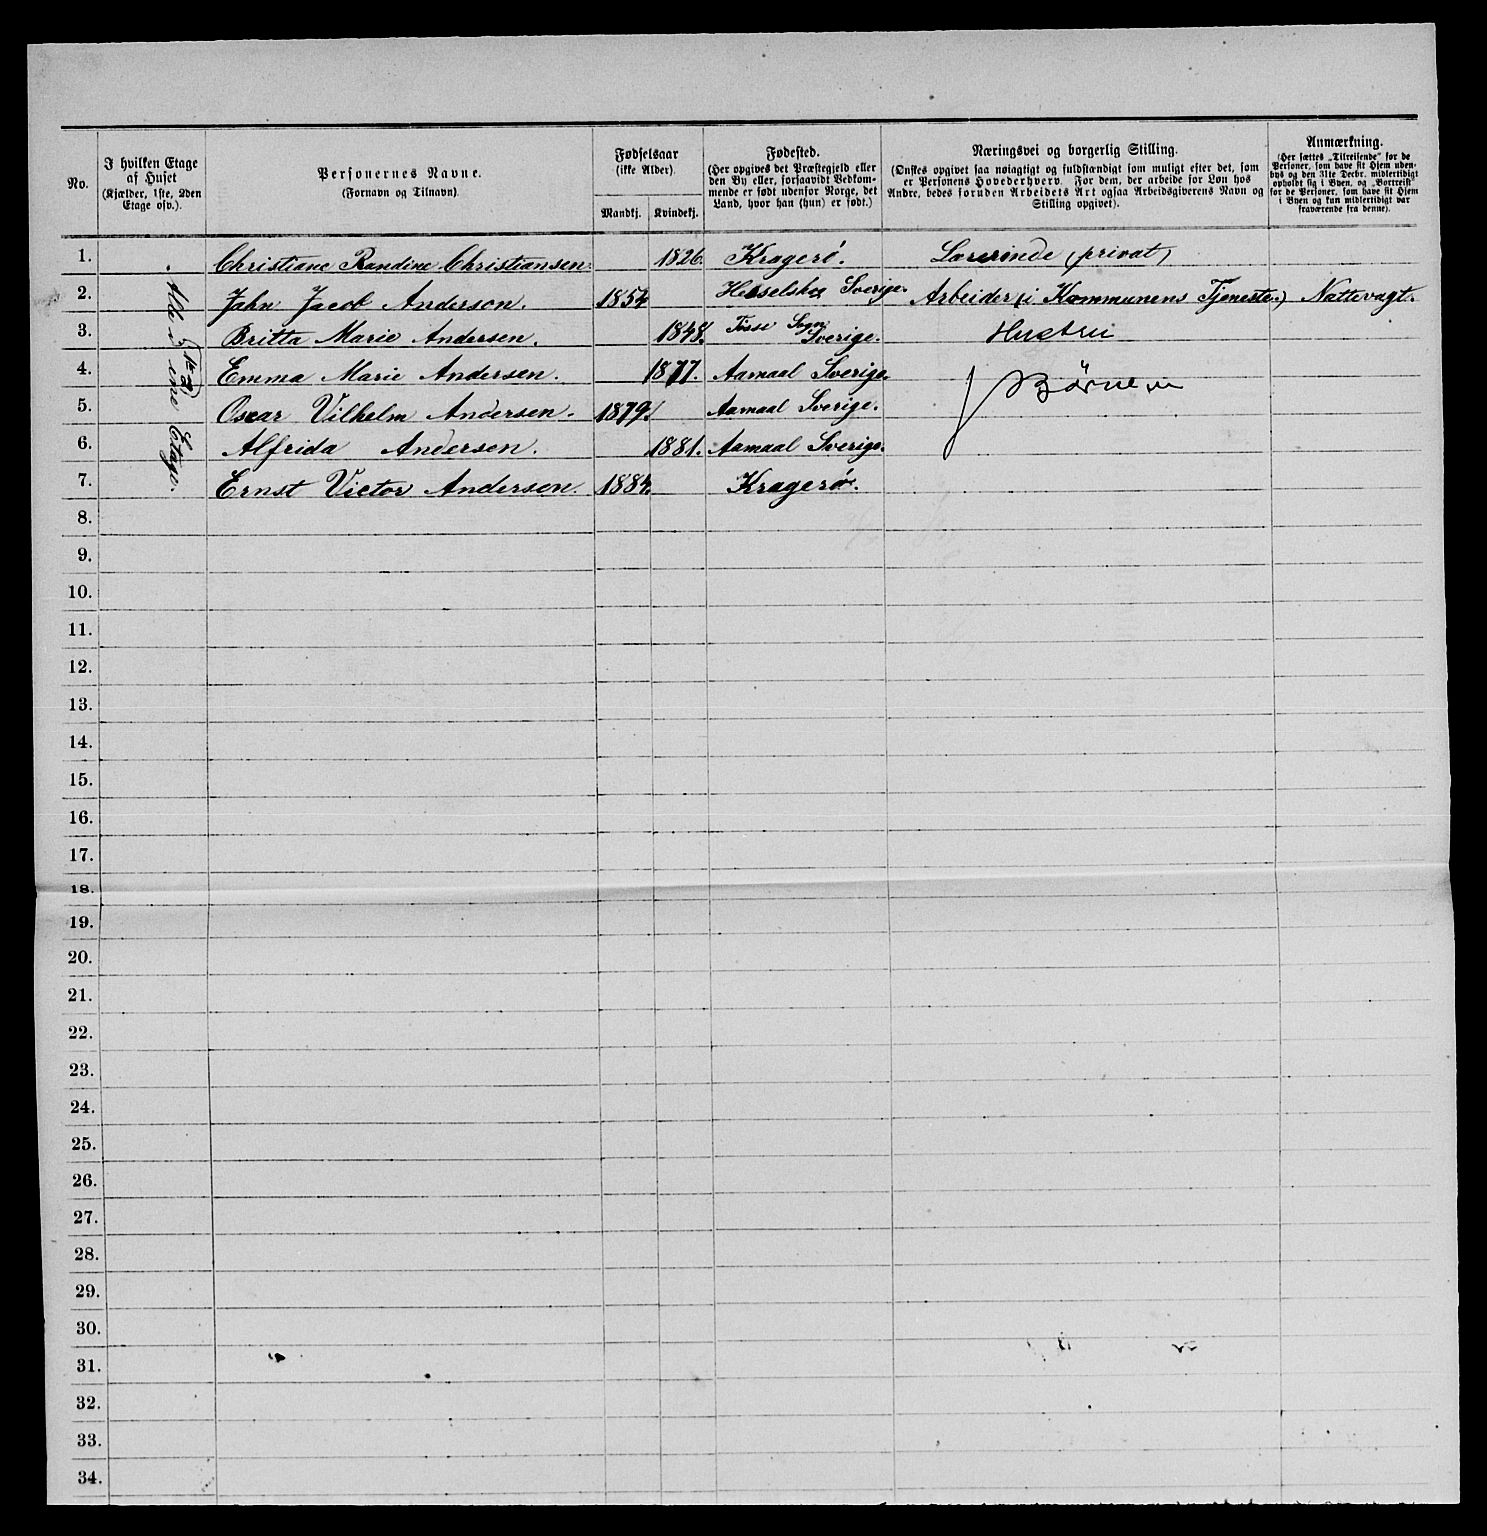 No.
I hvilken Etage af Huset (Kjælder, 1ste, 2den Etage osv.).
Personernes Navne. (Fornavn og Tilnavn).
Fødselsaar (ikke Alder).
Mandkj. Kvindekj.
Fødested. (Her opgives det Præstegjeld eller den By eller, forsaavidt Vedkommende er født udenfor Norge, det Land, hvor han (hun) er født.)
Næringsvei og borgerlig Stilling. (Ønskes opgivet saa nøiagtigt og fuldstændigt som muligt efter det, som er Personens Hovederhverv. For dem, der arbeide for Løn hos Andre, bedes foruden Arbeidets Art ogsaa Arbeidsgiverens Navn og Stilling opgivet).
Anmærkning. (Her sættes „Tilreisende" for de Personer, som have sit Hjem udenbys og den 31te Decbr. midlertidigt opholdt sig i Byen, og „Bortreist" for de Personer, som have sit Hjem i Byen og kun midlertidigt var fraværende fra denne).
1. Christiane Randine Christiansen. 1826. Kragerø. Lærerinde (privat)
2. John Jacob Anderson. 1854 Sverige. Arbeider (i Kommunens Tjeneste.) Nattevagt.
3. Britta Marie Andersen. 1848. Tösse Sogn Sverige. Hustru
4. Emma Marie Andersen. 1877. Aamaal Sverige. Børnene
5. Oscar Vilhelm Andersen. 1879. Aamaal Sverige.
6. Alfrida Andersen. 1881. Aamaal Sverige.
7. Ernst Victor Andersen. 1884. Kragerø.
Etage.
8.
9.
10.
11.
12.
13.
14.
15.
16.
17.
18.
19.
20.
21.
22.
23.
24.
25.
26.
27.
28.
29.
30.
31.
32.
33.
34.